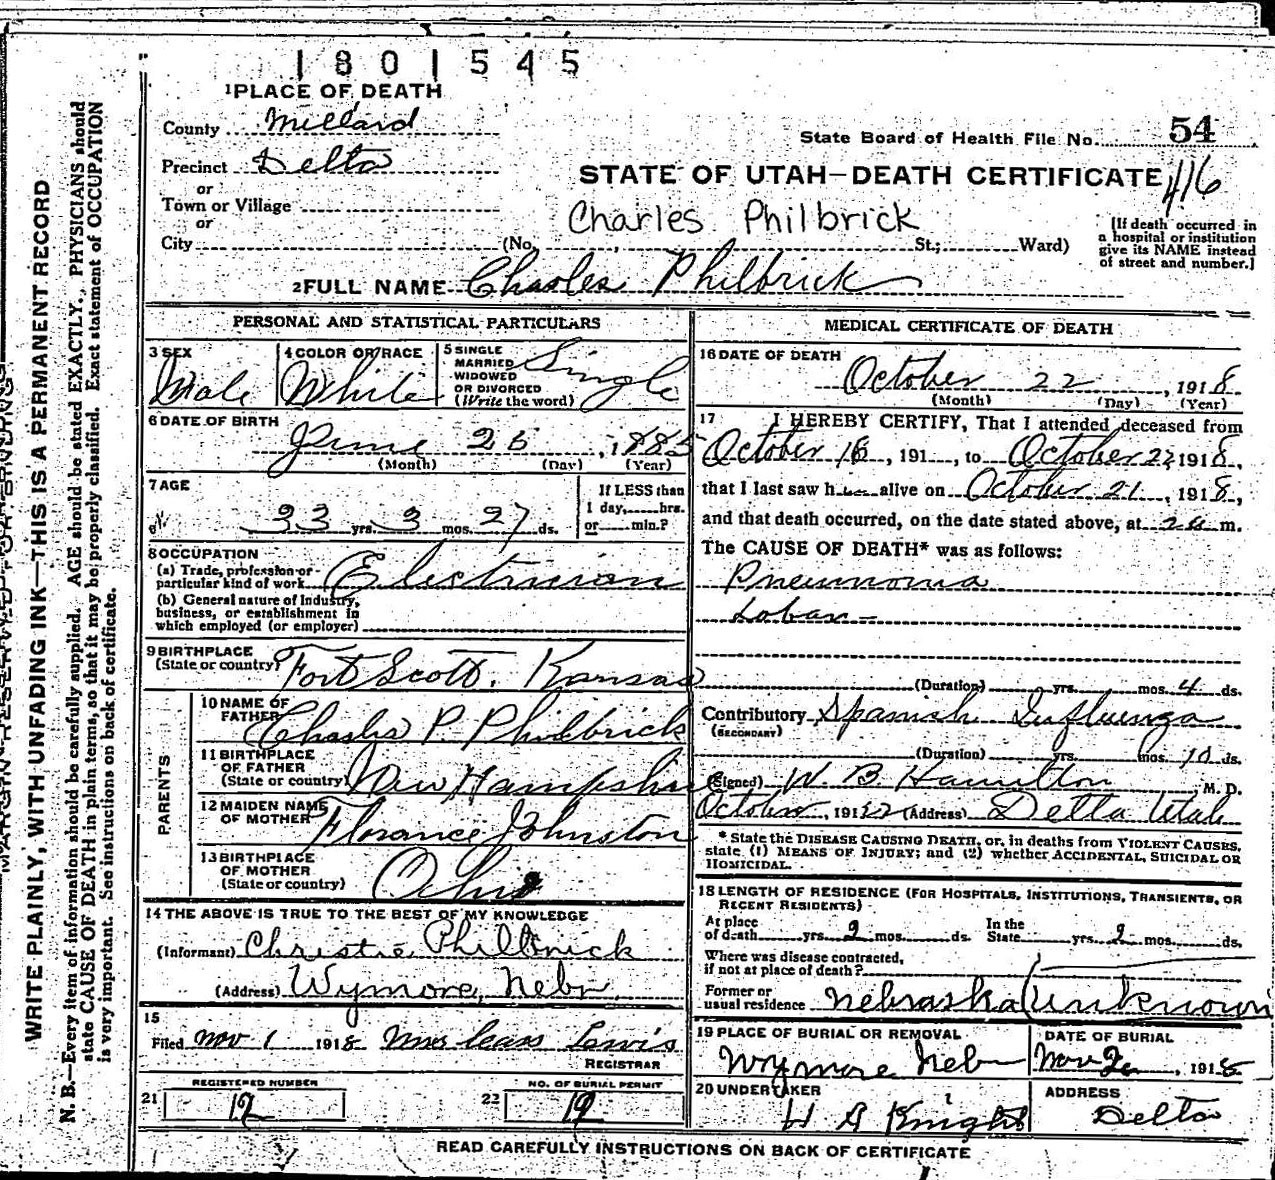 1801545
1 PLACE OF DEATH
County Millard
Precinct Delta
or
Town or Village
or
City (No. St.; Ward)
State Board of Health File No. 54
STATE OF UTAH—DEATH CERTIFICATE 416
Charles Philbrick
[If death occurred in
a hospital or institution
give its NAME instead
of street and number.]
2 FULL NAME Charles Philbrick
WRITE PLAINLY, WITH UNFADING INK—THIS IS A PERMANENT RECORD
N. B.—Every item of information should be carefully supplied. AGE should be stated EXACTLY. PHYSICIANS should
state CAUSE OF DEATH in plain terms, so that it may be properly classified. Exact statement of OCCUPATION
is very important. See instructions on back of certificate.
PERSONAL AND STATISTICAL PARTICULARS
3 SEX Male
4 COLOR OR RACE White
5 SINGLE
MARRIED
WIDOWED
OR DIVORCED
(Write the word) Single
6 DATE OF BIRTH
June 25, 1885
(Month) (Day) (Year)
7 AGE
33 yrs. 3 mos. 27 ds.
If LESS than
1 day, hrs.
or min.?
8 OCCUPATION
(a) Trade, profession or
particular kind of work Electrician
(b) General nature of industry,
business, or establishment in
which employed (or employer)
9 BIRTHPLACE
(State or country) Fort Scott, Kansas
PARENTS
10 NAME OF
FATHER Charles P. Philbrick
11 BIRTHPLACE
OF FATHER
(State or country) New Hampshire
12 MAIDEN NAME
OF MOTHER Florance Johnston
13 BIRTHPLACE
OF MOTHER
(State or country) Ohio
14 THE ABOVE IS TRUE TO THE BEST OF MY KNOWLEDGE
(Informant) Christie Philbrick
(Address) Wymore, Nebr.
15
Filed Nov 1 1918 Lewis
REGISTRAR
REGISTERED NUMBER
21 12
NO. OF BURIAL PERMIT
22 19
MEDICAL CERTIFICATE OF DEATH
16 DATE OF DEATH
October 22, 1918
(Month) (Day) (Year)
17 I HEREBY CERTIFY, That I attended deceased from
October 18, 191, to October 22 1918,
that I last saw h alive on October 21, 1918,
and that death occurred, on the date stated above, at m.
The CAUSE OF DEATH* was as follows:
Pneumonia
Lobar
(Duration) yrs. mos. 4 ds.
Contributory Spanish Influenza
(SECONDARY)
(Duration) yrs. mos. 10 ds.
(Signed) W. B. Hamilton, M. D.
October, 191 22 (Address) Delta Utah
* State the DISEASE CAUSING DEATH, or, in deaths from VIOLENT CAUSES,
state (1) MEANS OF INJURY; and (2) whether ACCIDENTAL, SUICIDAL OR
HOMICIDAL.
18 LENGTH OF RESIDENCE (FOR HOSPITALS, INSTITUTIONS, TRANSIENTS, OR
RECENT RESIDENTS)
At place
of death yrs. 2 mos. ds. In the
State yrs. 2 mos. ds.
Where was disease contracted,
if not at place of death?
Former or
usual residence Nebraska (unknown
19 PLACE OF BURIAL OR REMOVAL
Wymore Nebr
DATE OF BURIAL
Nov, 1918
20 UNDERTAKER
H A Knight
ADDRESS
Delta
READ CAREFULLY INSTRUCTIONS ON BACK OF CERTIFICATE